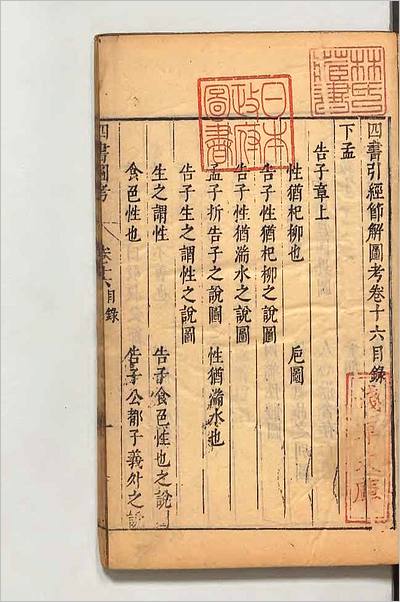 四書引經節解圖考卷十六目錄
下孟
告子章上
性猶杞柳也
巵圖
告子性猶杞柳之說圖
告子性猶湍水之說圖
孟子折告子之說圖
性猶湍水也
告子生之謂性之說圖
生之謂性
告子食色性也之說
食色性也
告子公都子義外之
四書圖考
卷十六目錄
日本
政府
圖書
淺草文庫